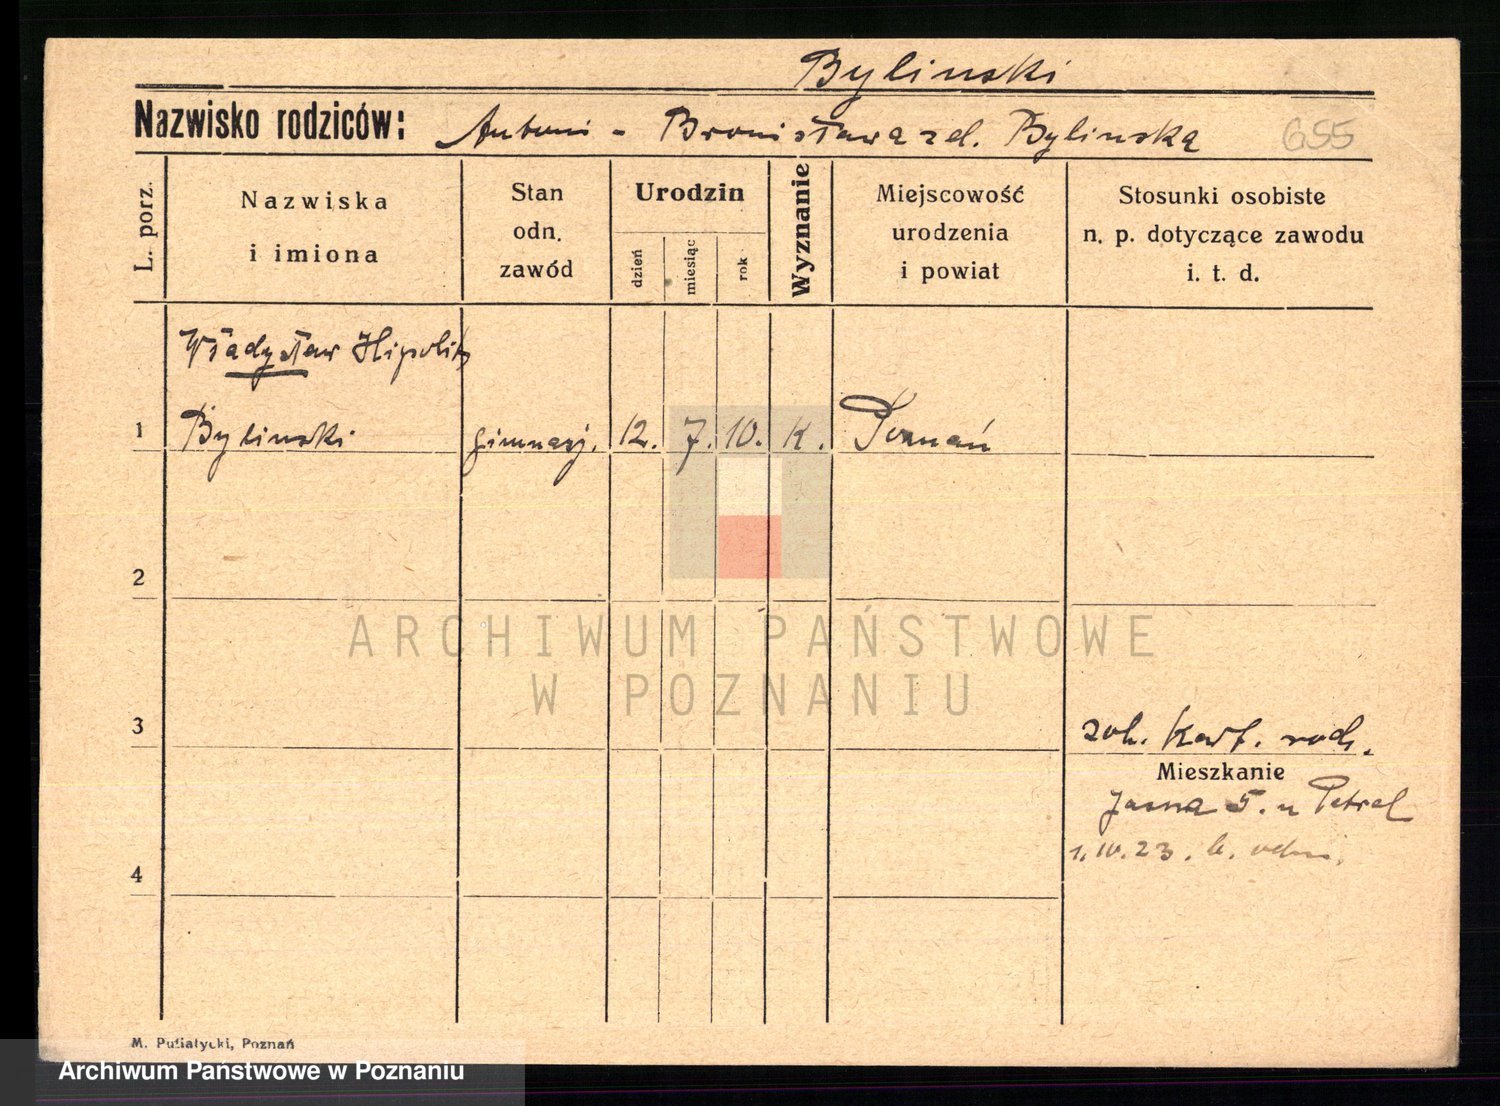 Bylinski
Nazwisko rodziców: Antoni - Bronisława zd. Bylinska 655
L. porz.
Nazwiska
i imiona
Stan
odn.
zawód
Urodzin
dzień
miesiąc
rok
Wyznanie
Miejscowość
urodzenia
i powiat
Stosunki osobiste
n. p. dotyczące zawodu
i. t. d.
Władysław Hipolit
1 Bylinski gimnazj. 12. 7. 10. K. Poznań
2
ARCHIWUM PAŃSTWOWE
W POZNANIU
3
zob. Kart. rodz.
Mieszkanie
Jasna 5. u Petral
1.IV.23.
4
M. Putiatycki, Poznań
Archiwum Państwowe w Poznaniu